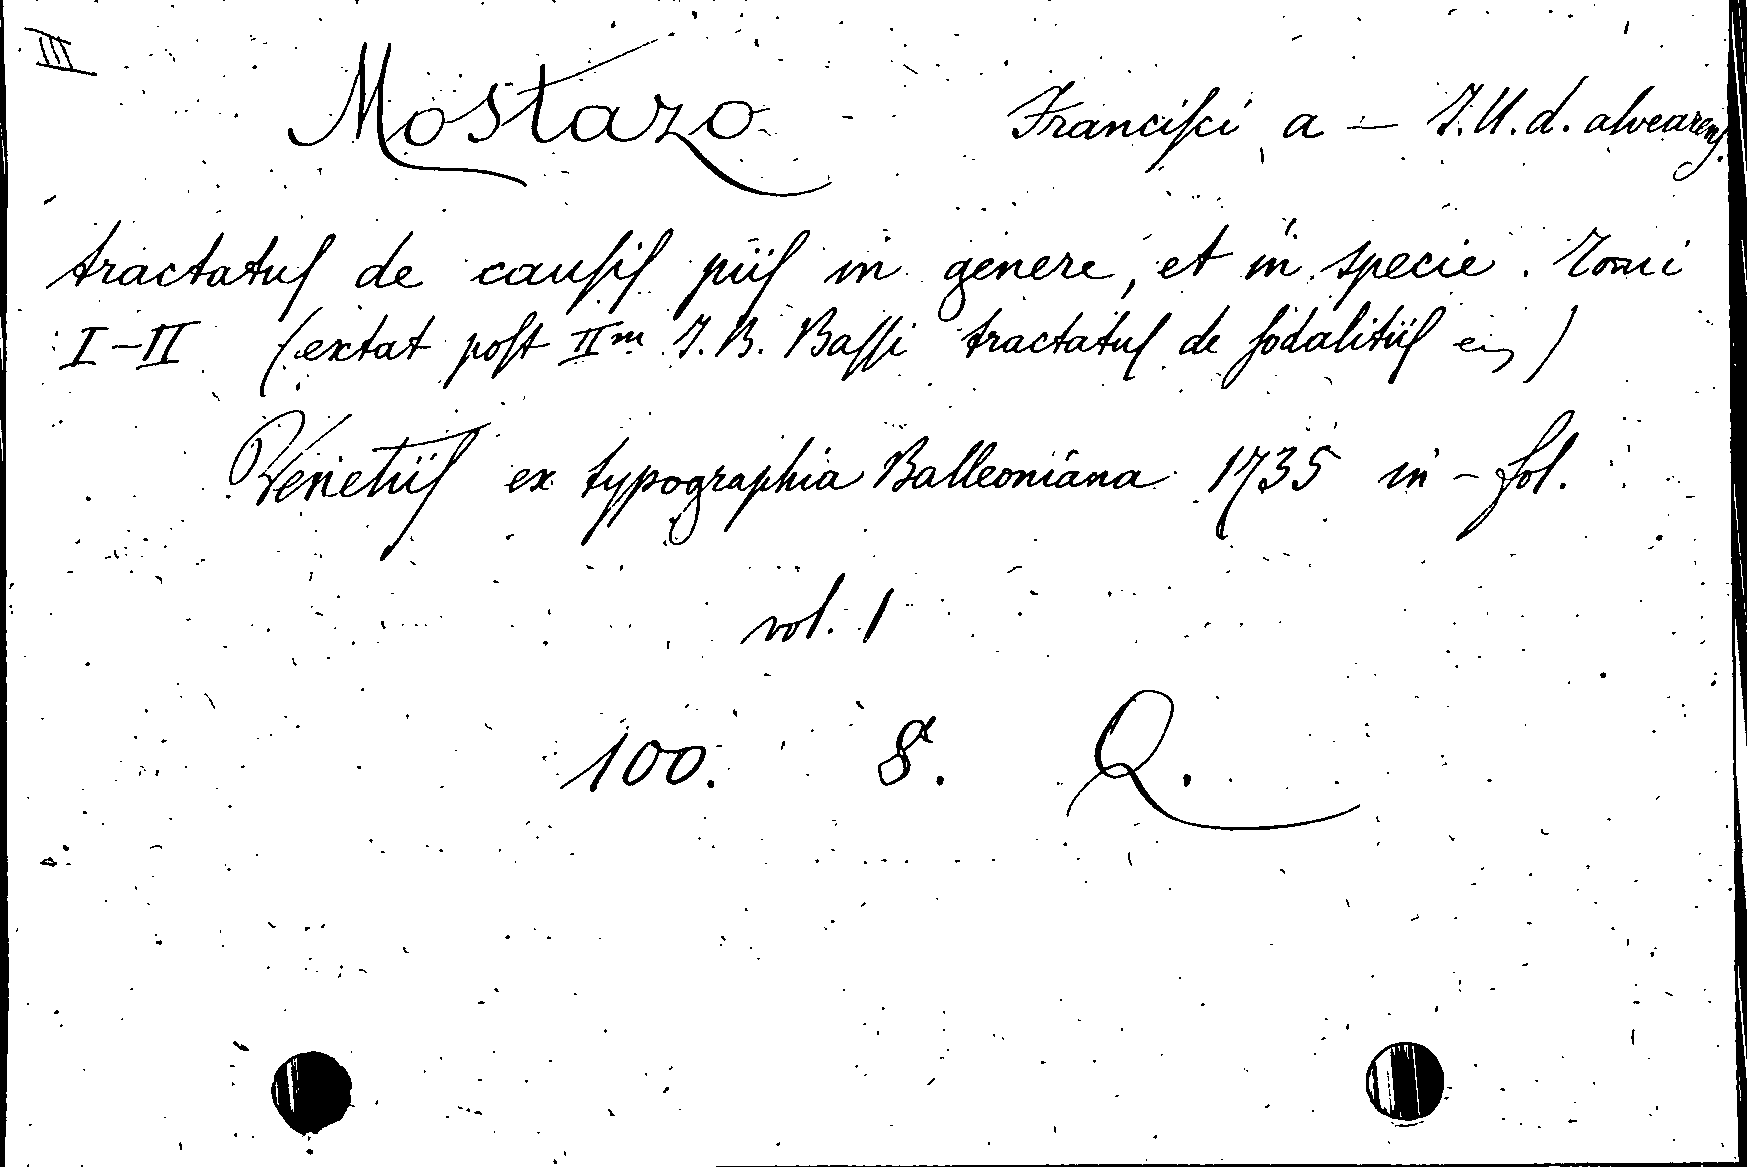 III
Mostazo Francisci a — J.U.d. alvearens.
tractatus de causis piis in genere, et in specie. Tomi
I–II (extat post IIm J.B. Bassi tractatus de sodalitiis)
Venetiis ex typographia Balleoniana 1735 in-fol.
vol. 1
100. 8. Q.